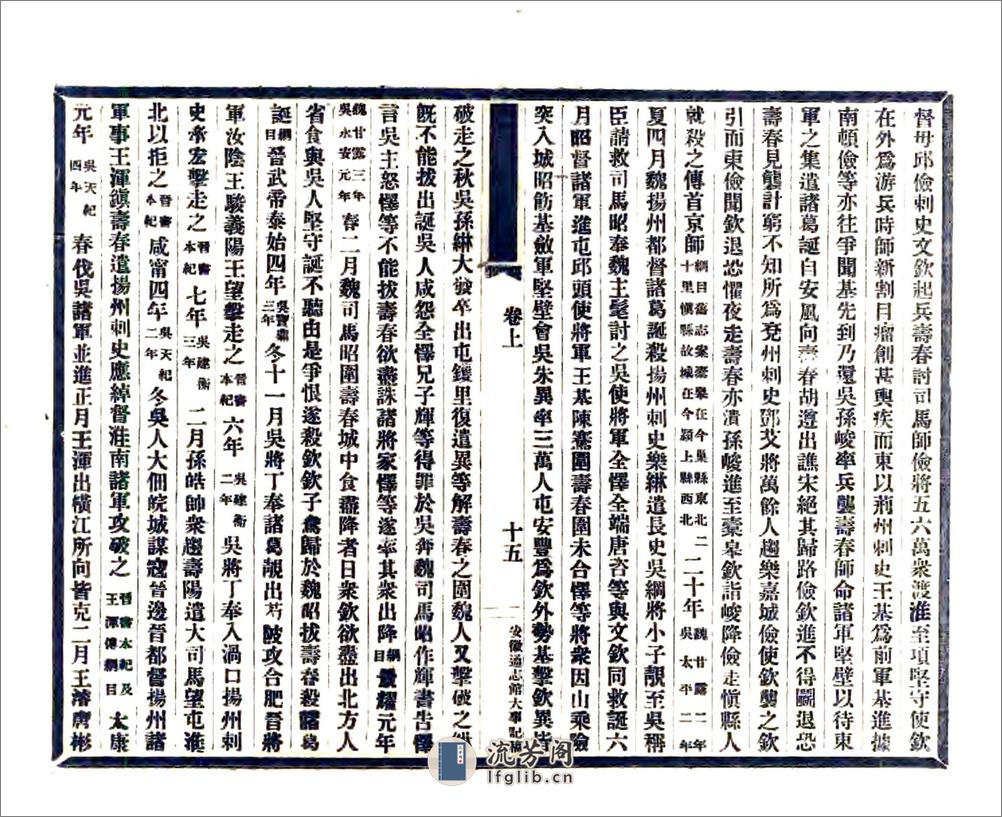 督毋邱儉刺史文欽起兵壽春討司馬師儉將五六萬衆渡淮至項堅守使欽
在外爲游兵時師新割目瘤創甚輿疾而東以荊州刺史王基爲前軍基進據
南頓儉等亦往爭聞基先到乃還吳孫峻率兵襲壽春師命諸軍堅壁以待東
軍之集遣諸葛誕自安風向壽春胡遵出譙宋絕其歸路儉欽進不得鬭退恐
壽春見襲計窮不知所爲兗州刺史鄧艾將萬餘人趨樂嘉城儉使欽襲之欽
引而東儉聞欽退恐懼夜走壽春亦潰孫峻進至橐皋欽詣峻降儉走愼縣人
就殺之傳首京師綱目舊志案橐皋在今巢縣東北二十里愼縣故城在今潁上縣西北二十年魏甘露二年吳太平二年
夏四月魏揚州都督諸葛誕殺揚州刺史樂綝遣長史吳綱將小子靚至吳稱
臣請救司馬昭奉魏主髦討之吳使將軍全懌全端唐咨等與文欽同救誕六
月昭督諸軍進屯邱頭使將軍王基陳騫圍壽春圍未合懌等將衆因山乘險
突入城昭飭基斂軍堅壁會吳朱異率三萬人屯安豐爲欽外勢基擊欽異皆
卷上
十五
安徽通志館大事記稿
破走之秋吳孫綝大發卒出屯鑊里復遣異等解壽春之圍魏人又擊破之綝
旣不能拔出誕吳人咸怨全懌兄子輝等得罪於吳奔魏司馬昭作輝書告懌
言吳主怒懌等不能拔壽春欲盡誅諸將家懌等遂率其衆出降綱目景耀元年
魏甘露三年吳永安元年春二月魏司馬昭圍壽春城中食盡降者日衆欽欲盡出北方人
省食與吳人堅守誕不聽由是爭恨遂殺欽欽子鴦歸於魏昭拔壽春殺諸葛
誕綱目晉武帝泰始四年吳寶鼎三年冬十一月吳將丁奉諸葛靚出芍陂攻合肥晉將
軍汝陰王駿義陽王望擊走之晉書本紀六年吳建衡二年吳將丁奉入渦口揚州刺
史牽宏擊走之晉書本紀七年吳建衡三年二月孫皓帥衆趨壽陽遣大司馬望屯淮
北以拒之晉書本紀咸甯四年吳天紀二年冬吳人大佃皖城謀寇晉邊晉都督揚州諸
軍事王渾鎭壽春遣揚州刺史應綽督淮南諸軍攻破之晉書本紀及王渾傳綱目太康
元年吳天紀四年春伐吳諸軍並進正月王渾出橫江所向皆克二月王濬唐彬
流芳阁
lfglib.cn